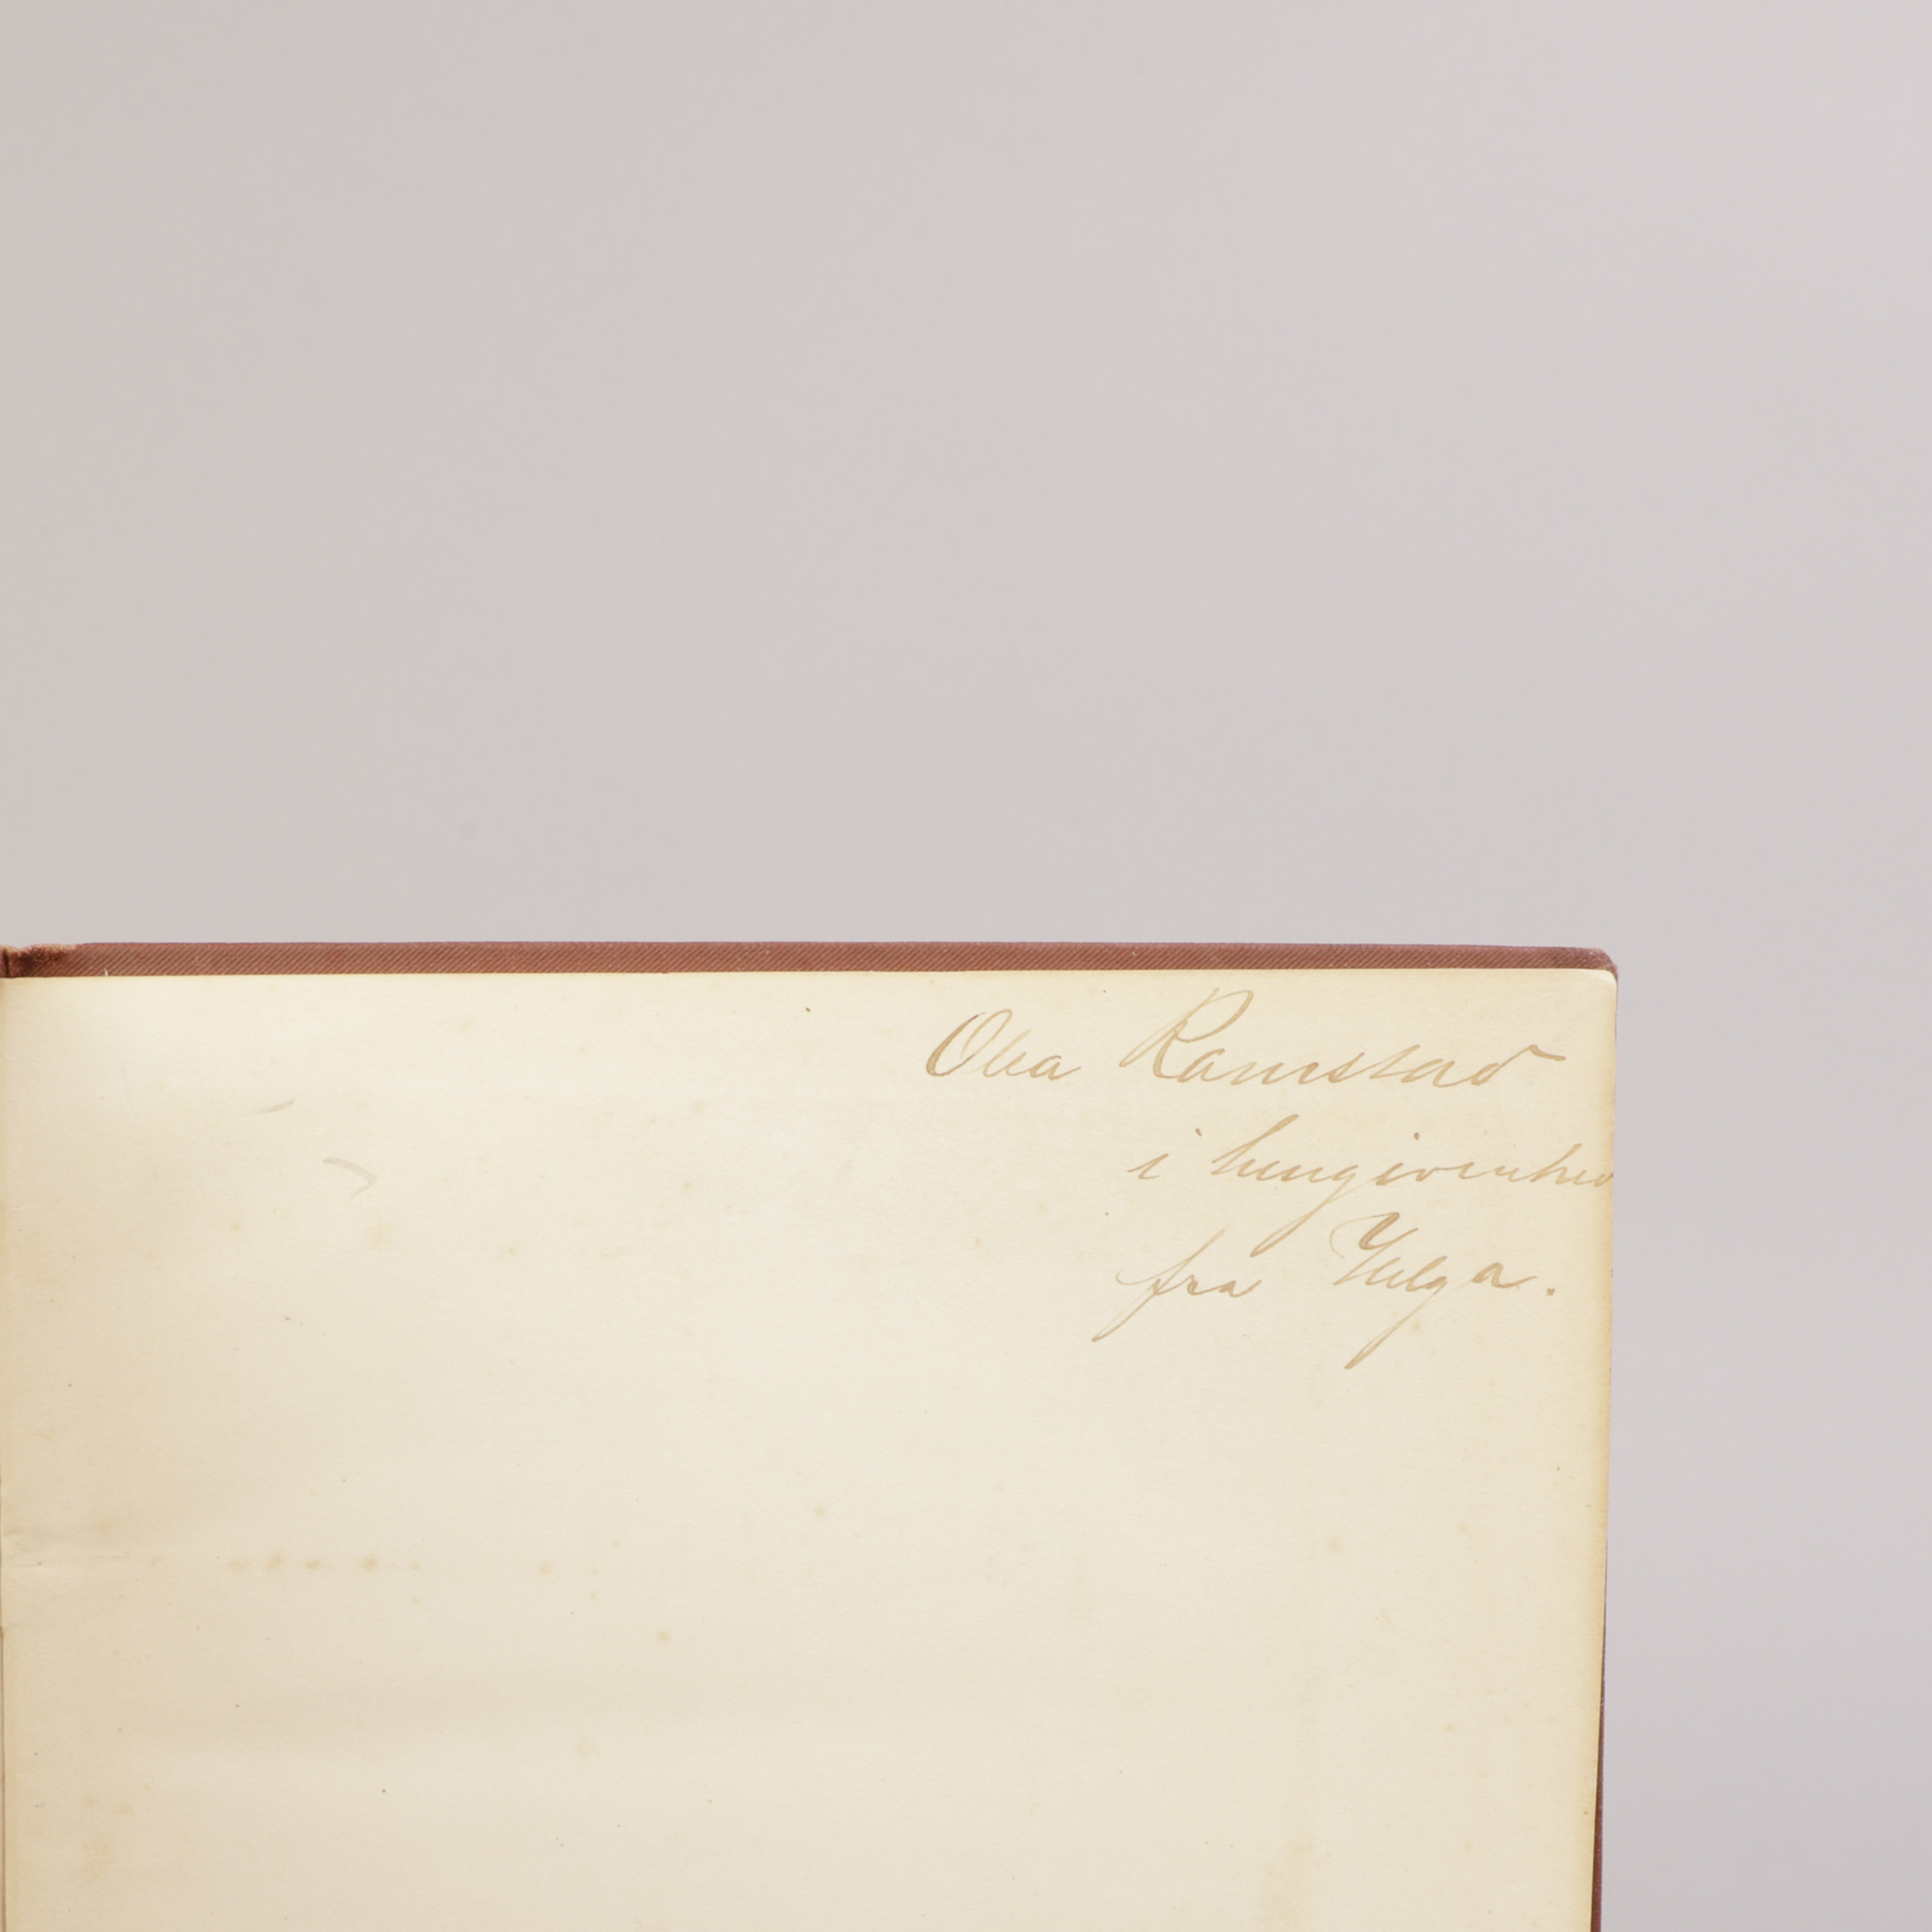 Olea Ramstad
i hengivenhed
fra Helga.